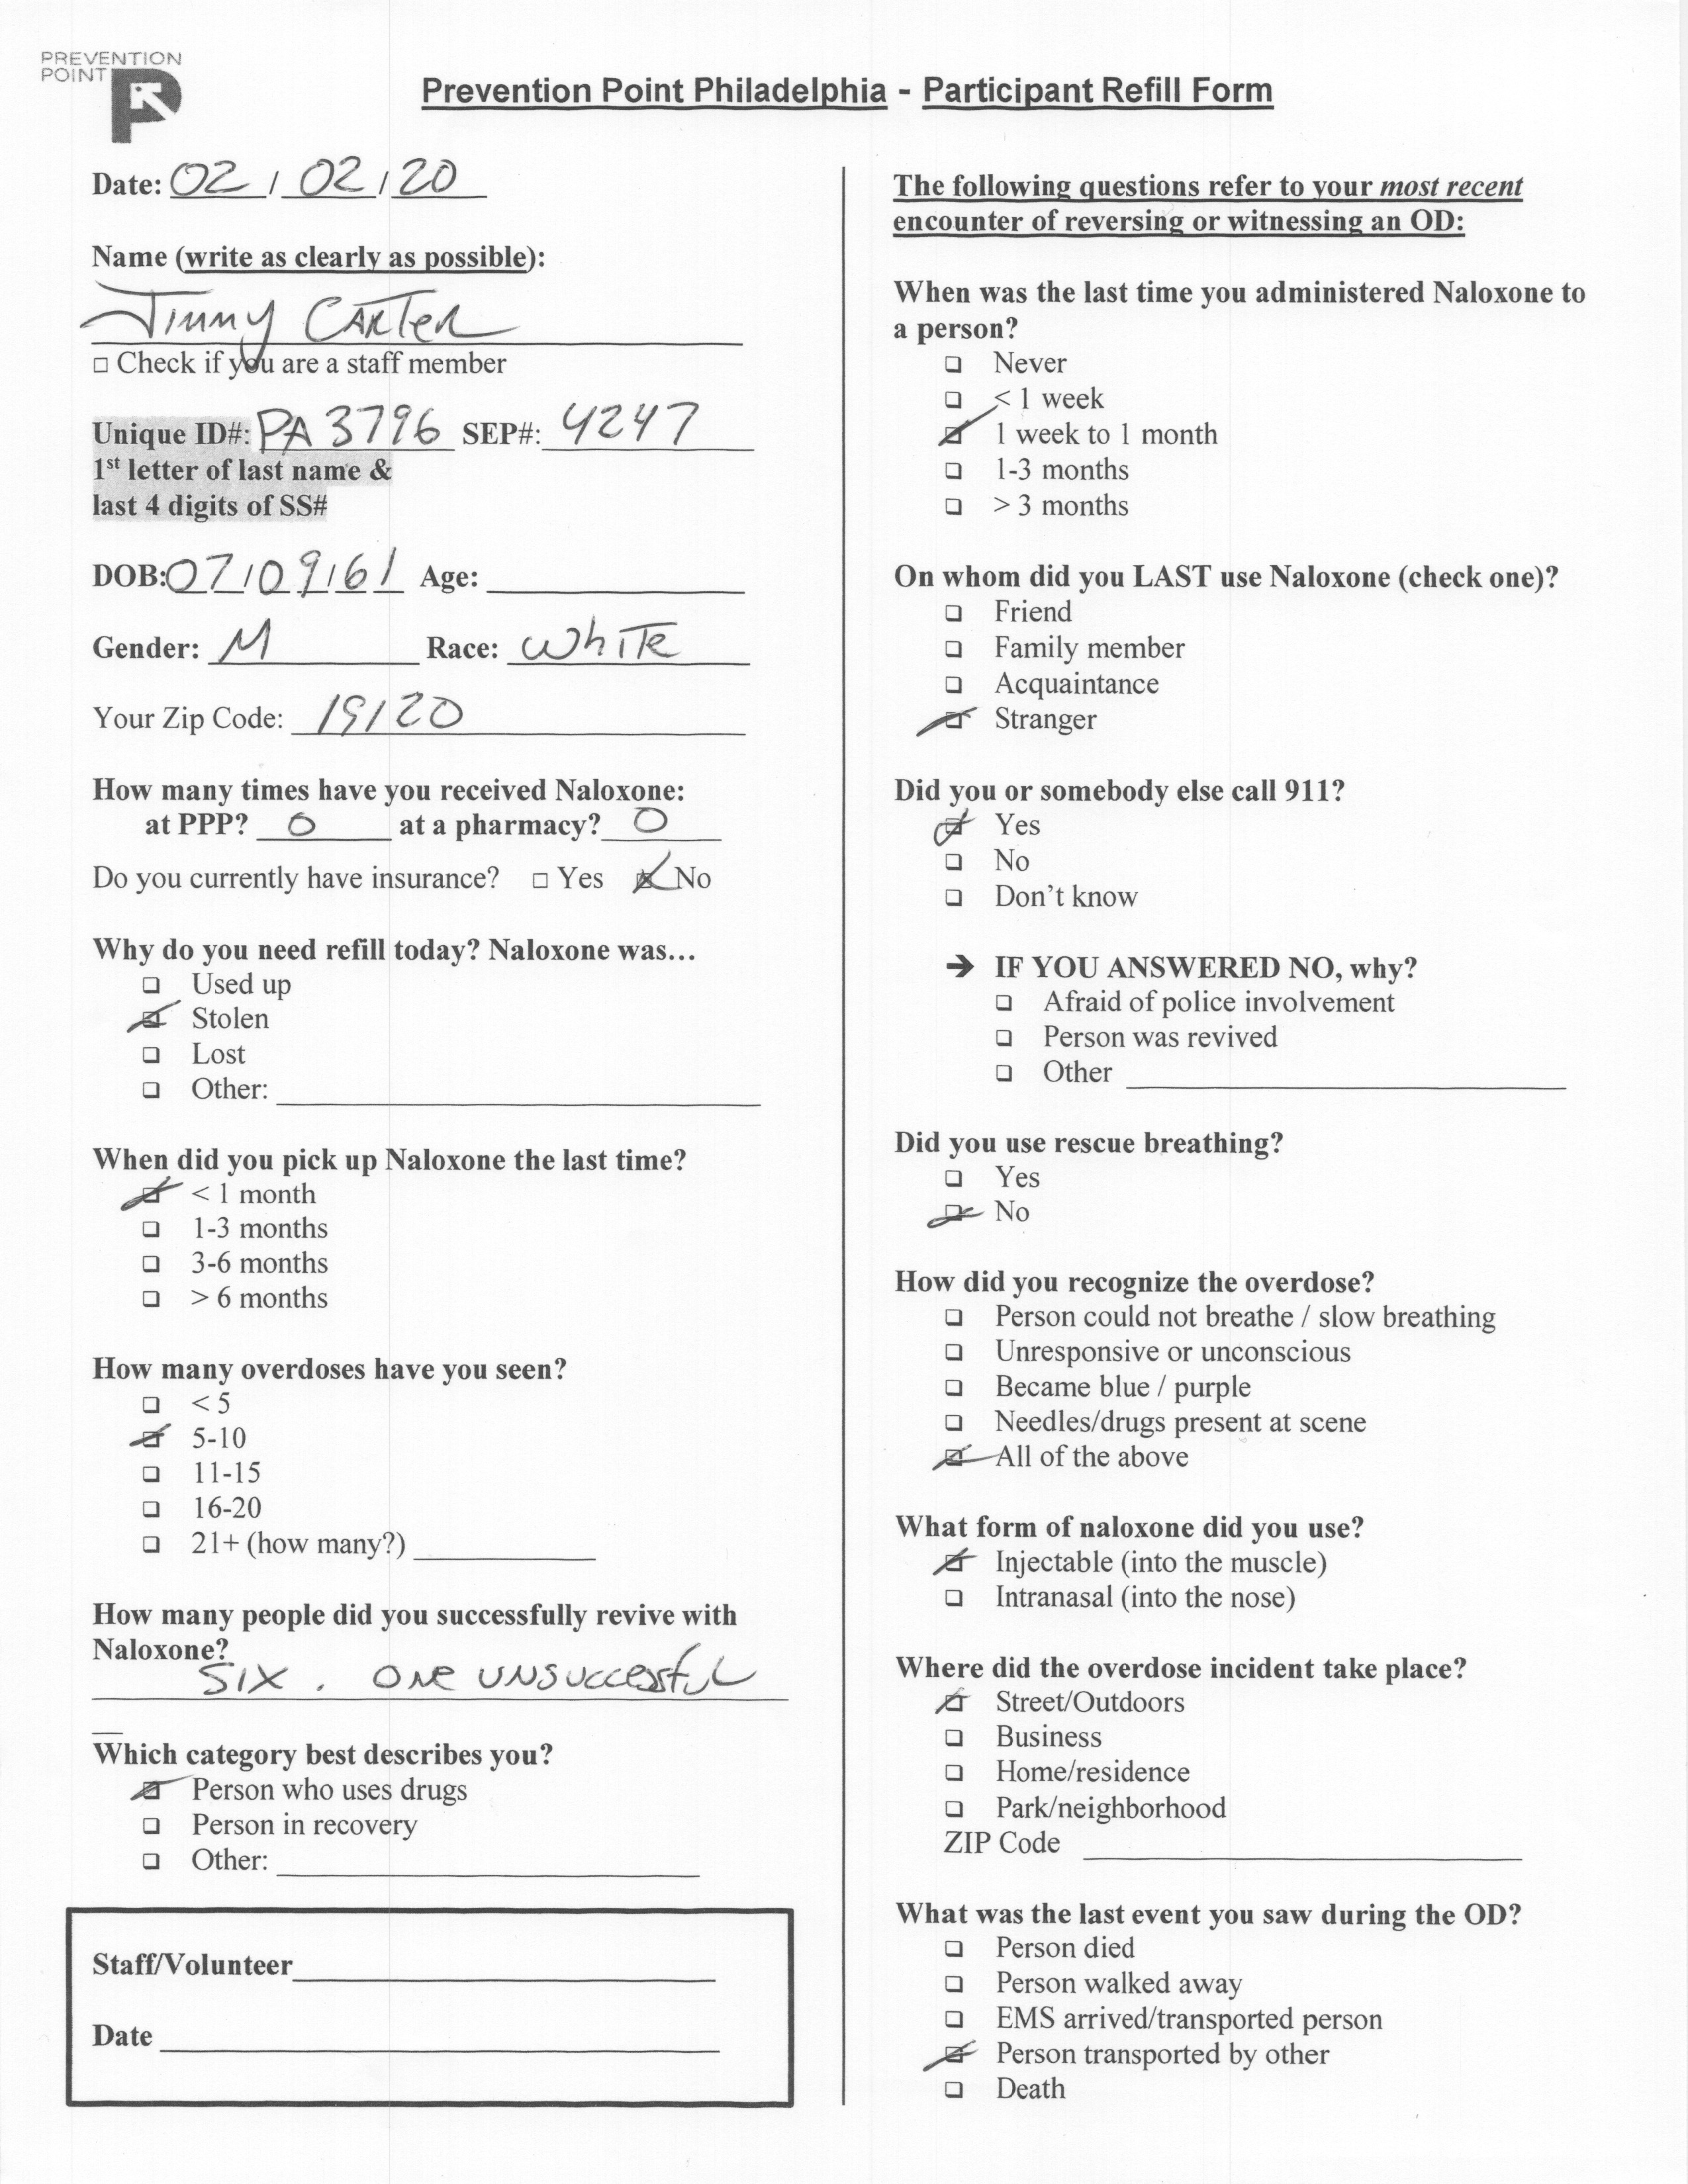 PREVENTION
POINT
Prevention Point Philadelphia - Participant Refill Form
Date: 02 / 02 / 20
Name (write as clearly as possible):
Jimmy CARTER
□ Check if you are a staff member
Unique ID#: PA 3796 SEP#: 4247
1st letter of last name &
last 4 digits of SS#
DOB: 07/09/61 Age:
Gender: M Race: White
Your Zip Code: 19120
How many times have you received Naloxone:
at PPP? 0 at a pharmacy? 0
Do you currently have insurance? □ Yes ☒ No
Why do you need refill today? Naloxone was…
❑ Used up
☑ Stolen
❑ Lost
❑ Other:
When did you pick up Naloxone the last time?
☑ < 1 month
❑ 1-3 months
❑ 3-6 months
❑ > 6 months
How many overdoses have you seen?
❑ < 5
☑ 5-10
❑ 11-15
❑ 16-20
❑ 21+ (how many?)
How many people did you successfully revive with
Naloxone?
SIX . ONE UNSUCCESSFUL
Which category best describes you?
☑ Person who uses drugs
❑ Person in recovery
❑ Other:
Staff/Volunteer
Date
The following questions refer to your most recent
encounter of reversing or witnessing an OD:
When was the last time you administered Naloxone to
a person?
❑ Never
❑ < 1 week
☑ 1 week to 1 month
❑ 1-3 months
❑ > 3 months
On whom did you LAST use Naloxone (check one)?
❑ Friend
❑ Family member
❑ Acquaintance
☑ Stranger
Did you or somebody else call 911?
☑ Yes
❑ No
❑ Don't know
➔ IF YOU ANSWERED NO, why?
❑ Afraid of police involvement
❑ Person was revived
❑ Other
Did you use rescue breathing?
❑ Yes
☑ No
How did you recognize the overdose?
❑ Person could not breathe / slow breathing
❑ Unresponsive or unconscious
❑ Became blue / purple
❑ Needles/drugs present at scene
☑ All of the above
What form of naloxone did you use?
☑ Injectable (into the muscle)
❑ Intranasal (into the nose)
Where did the overdose incident take place?
☑ Street/Outdoors
❑ Business
❑ Home/residence
❑ Park/neighborhood
ZIP Code
What was the last event you saw during the OD?
❑ Person died
❑ Person walked away
❑ EMS arrived/transported person
☑ Person transported by other
❑ Death